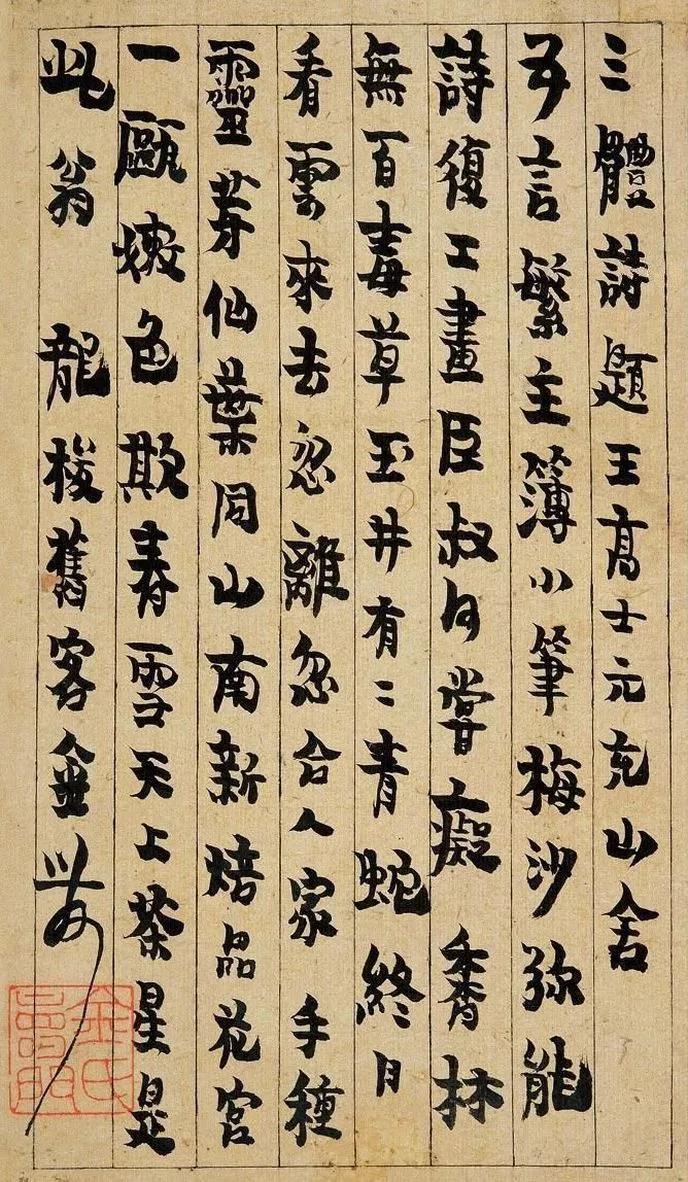 三體詩題王髙士元充山舍
五言繁主簿小筆梅沙弥能
詩復工畫臣叔何嘗癡 香林
無百毒草玉井有二青蛇終日
看雲來去忽離忽合人家 手種
靈芽仙葉同山南新焙品花宮
一甌嫩色欺春雪天上茶星是
此翁 龍梭舊客金農
金氏壽門